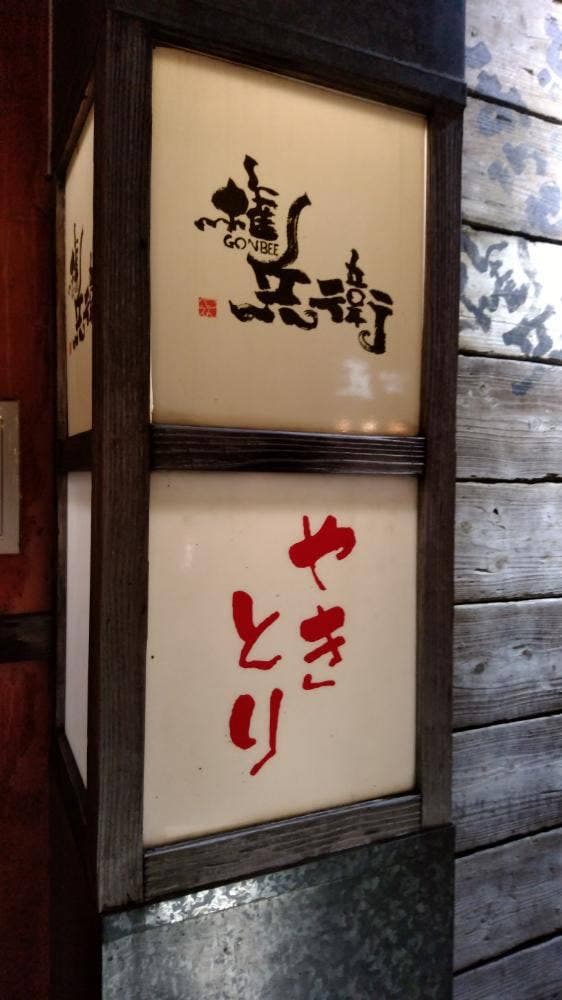 権兵衛
GONBEE
やき
とり